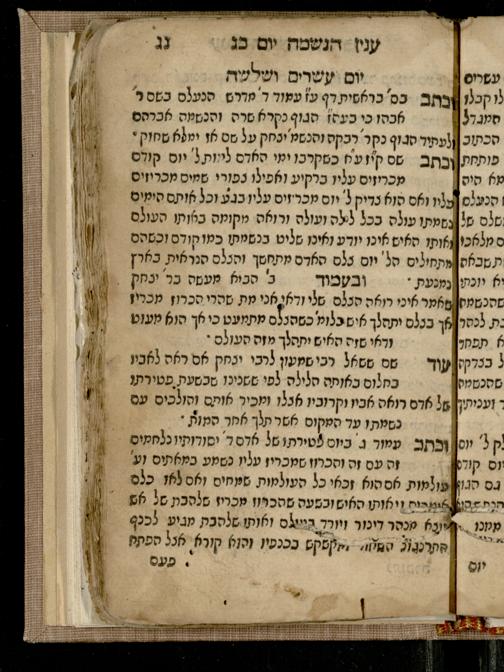 ענין הנשמה יום כג נג
יום עשרים ושלשה
וכתב בס' בראשית דף ע"ז עמוד ד' מדרש הנעלם בשם ר'
אבהו כי בעה"ז הגוף נקרא שרה והנשמה אברהם
ולעתיד הגוף נקר' רבקה והנשמ' יצחק על שם אז ימלא שחוק
וכתב שם קי"ז ע"א כשקרבו ימי האדם ל' יום קודם
מכריזים עליו ברקיע ואפילו צפורי שמים מכריזים
עליו ואם הוא צדיק ל' יום מכריזים עליו בג"ע וכל אותם הימים
נשמתו עולה בכל לילה ועולה ורואה מקומה באותו העולם
ואותו האיש אינו יודע ואינו שליט בנשמתו כמו קודם וכשהם
מתחילים הל' יום צלם האדם מתחשך והצלם הנראית בארץ
נמנעת ובעמוד ב' הביא מעשה בר' יצחק
שאמר איני רואה הצלם שלי ודאי אני מת שהרי הכרוז מכריז
אך בצלם יתהלך איש כלומ' כשהצלם מתמעט כי אך הוא מעוט
ודאי שזה האיש יתהלך מזה העולם
עוד שם ששאל רבי שמעון לרבי יצחק אם ראה לאביו
בחלום באותה הלילה לפי ששנינו שבשעת פטירתו
של אדם רואה אביו וקרוביו אצלו ומכיר אותם והולכים עם
נשמתו עד המקום אשר תלך אחר המות
וכתב עמוד ג' ביום פטירתו של אדם ד' יסודותיו נלחמים
זה עם זה והכרוז שמכריז עליו נשמע במאתים וע'
עולמות אם הוא זכאי כל העולמות שמחים ואם לאו כלם
ויאותו האיש ובשעה שהכרוז מכריז שלהבת של אש
יוצא מנהר דינור ויורד בעולם ואותו שלהבת מגיע לכנף
התרנגול ומקשקש בכנפיו והוא קורא אצל הפתח
פעם